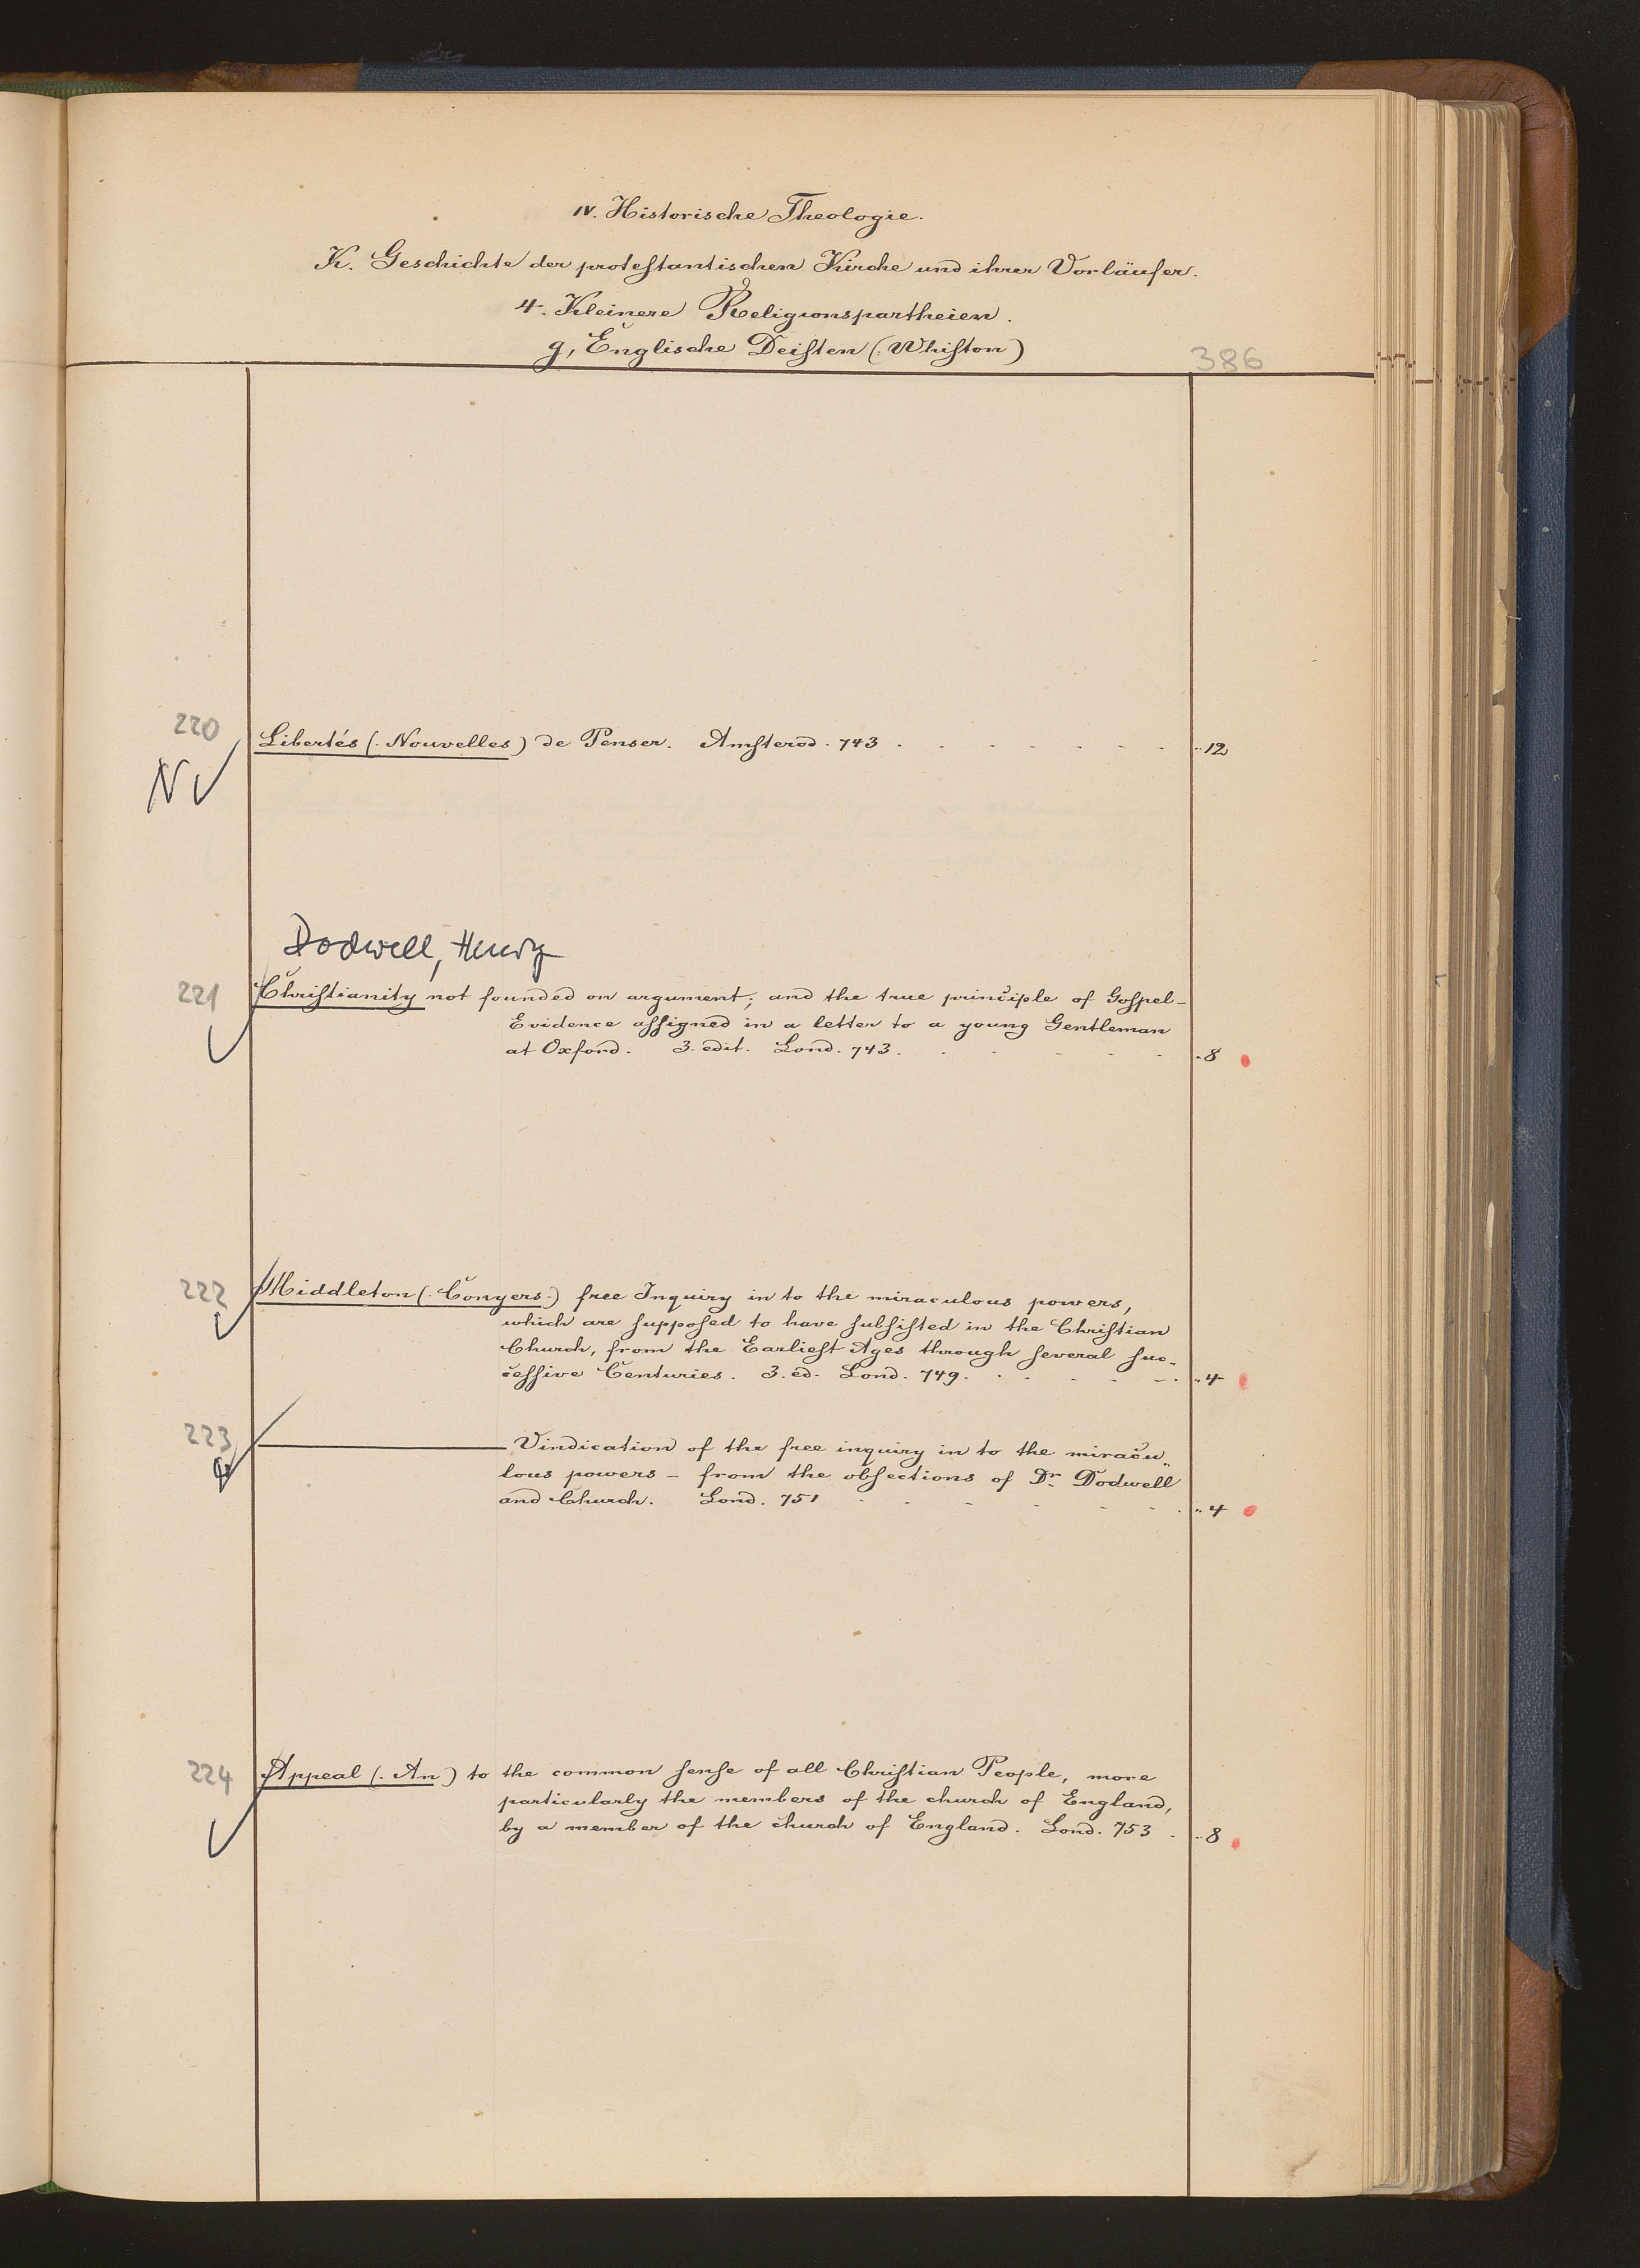 IV. Historische Theologie.
K. Geschichte der protestantischen Kirche und ihrer Vorläufer.
4. Kleinere Religionspartheien.
g, Englische Deisten (: Whiston)
386
220
Libertés (: Nouvelles) de Penser. Amsterod. 743 . - - - - - - - „12
N
Dodwell, Henry
221 Christianity not founded on argument; and the true principle of Gospel-
Evidence assigned in a letter to a young Gentleman
at Oxford. 3. edit. Lond. 743. - - - - - „8
222 Middleton (: Conyers :) free Inquiry in to the miraculous powers,
which are supposed to have subsisted in the Christian
Church, from the Earliest Ages through several suc-
cessive Centuries. 3. ed. Lond. 749. - - - - - „4
223 ——— Vindication of the free inquiry in to the miracu„
lous powers – from the obsections of Dr. Dodwell
and Church. Lond. 751 - - - - - - „4
224 Appeal (: An) to the common sense of all Christian People, more
particularly the members of the church of England,
by a member of the church of England. Lond. 753 - „8